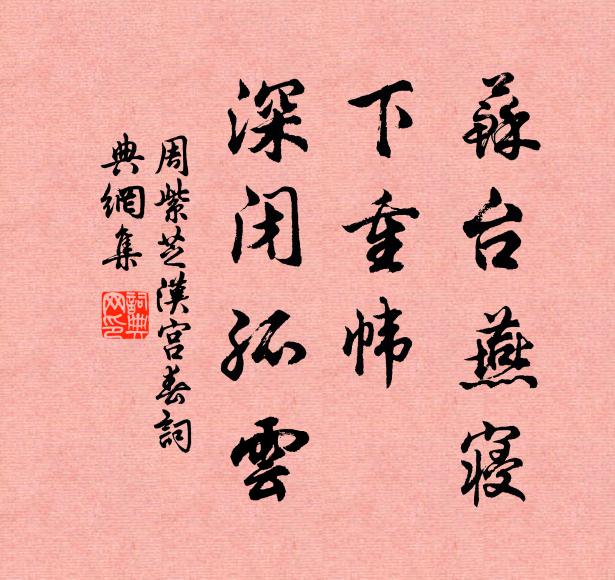 蘇台燕寢
下重幃
深闭孤雲
周紫芝漢宮春詞
典網集
詞典
网印